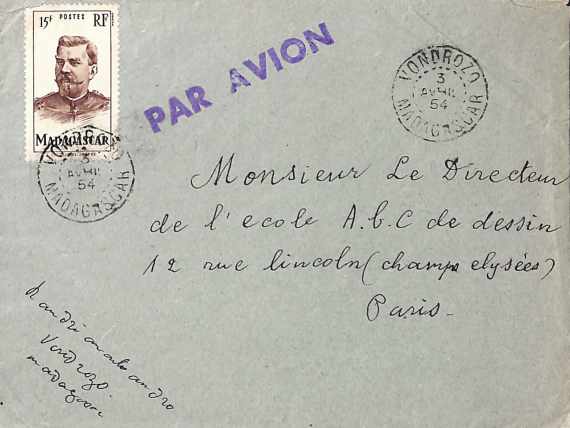 15F POSTES RF
MADAGASCAR
PAR AVION
VONDROZO
3
AVRIL
54
MADAGASCAR
VONDROZO
3
AVRIL
54
MADAGASCAR
Monsieur Le Directeur
de l'ecole A.b.C de dessin
12 rue lincoln (champs elysées)
Paris.
Vondrozo.
madagascar